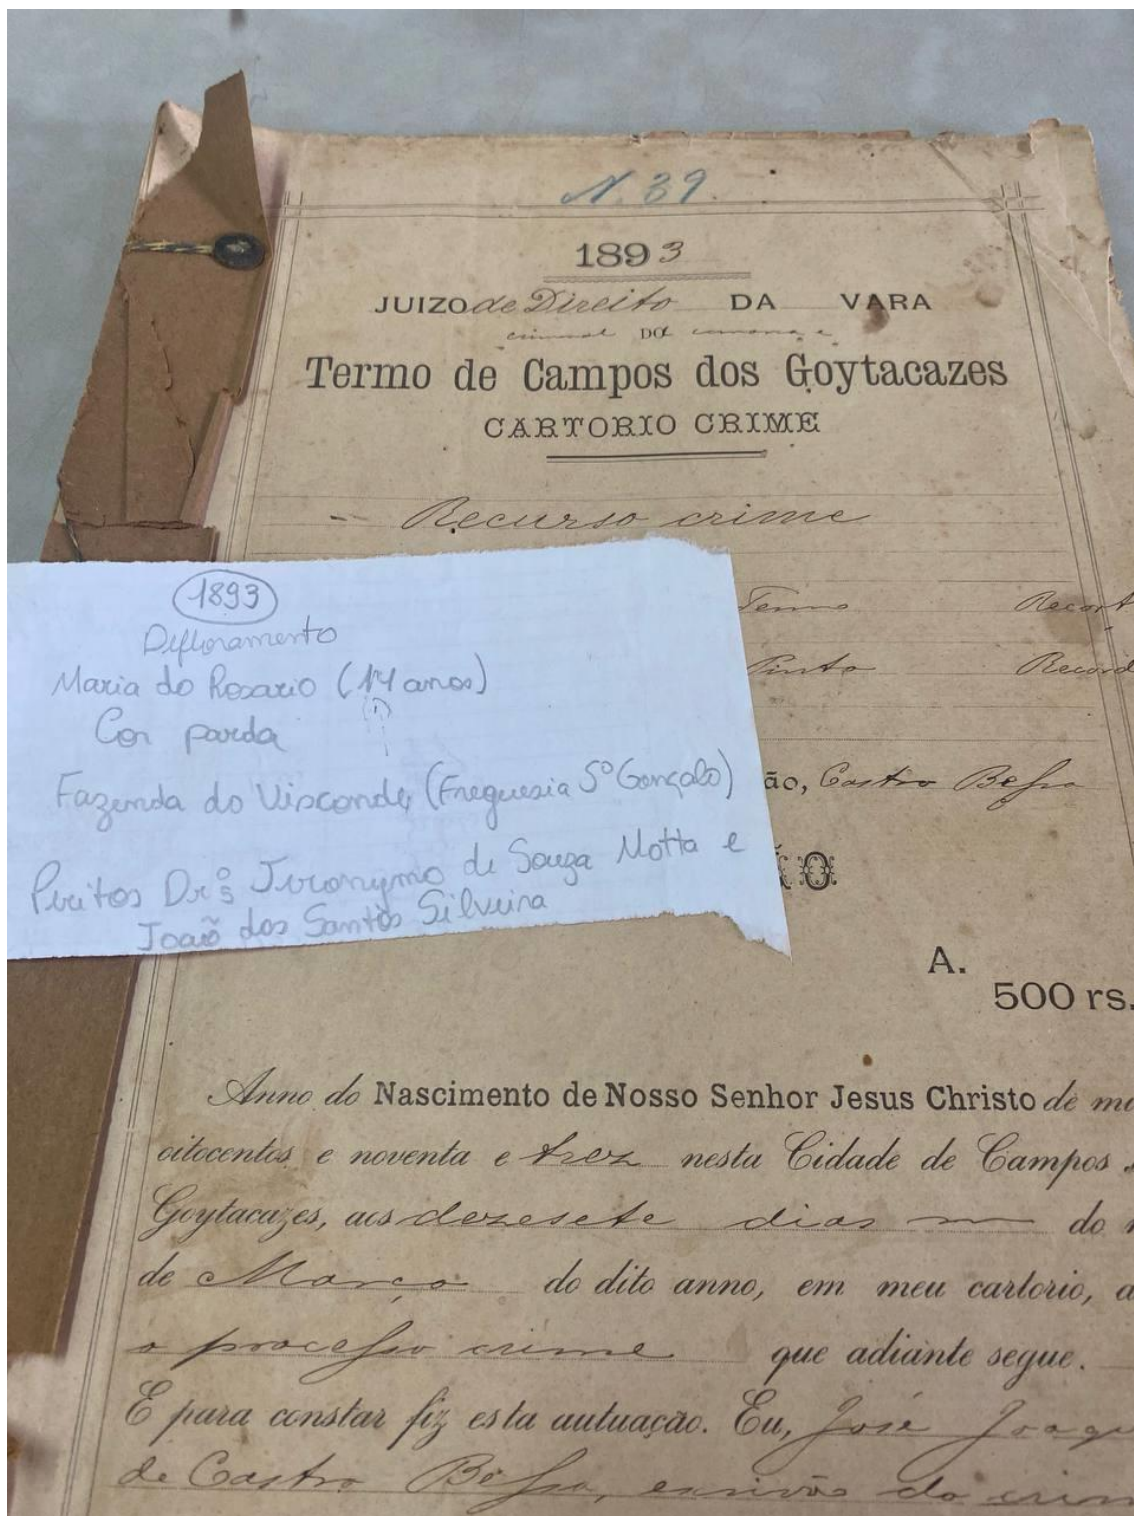 N. 39.
1893
JUIZO de Direito DA VARA
criminal DO
Termo de Campos dos Goytacazes
CARTORIO CRIME
Recurso crime
Termo Recort
Pinto Record
ão, Castro Bessa
ÃO
1893
Defloramento
Maria do Rosario (14 anos)
Cor parda
Fazenda do Visconde (Freguesia Sº Gonçalo)
Peritos Drºs Jeronymo de Souza Motta e
João dos Santos Silveira
A.
500 rs.
Anno do Nascimento de Nosso Senhor Jesus Christo de
oitocentos e noventa e trez nesta Cidade de Campos
Goytacazes, aos dezesete dias do
de Março do dito anno, em meu cartorio, a
o processo crime que adiante segue.
E para constar fiz esta autuação. Eu, José Joaqu
de Castro Bessa, escrivão do crim